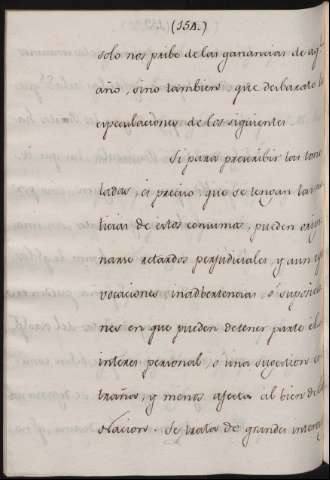 (154.)
solo nos pribe de las ganancias de aql
año, sino tambien que desbarate la
especulaciones de los siguientes.
Si para prescribir las tone
ladas, es preciso que se tengan las no
ticias de estos consumos, pueden origi
narse retardos perjudiciales y aun
vocaciones, inadbertencias, ó suposicio
nes en que pueden detener parte el
interes personal, ó una sugestion es
traña, y menos afecta al bien de la
Nacion. Se trata de grandes interes